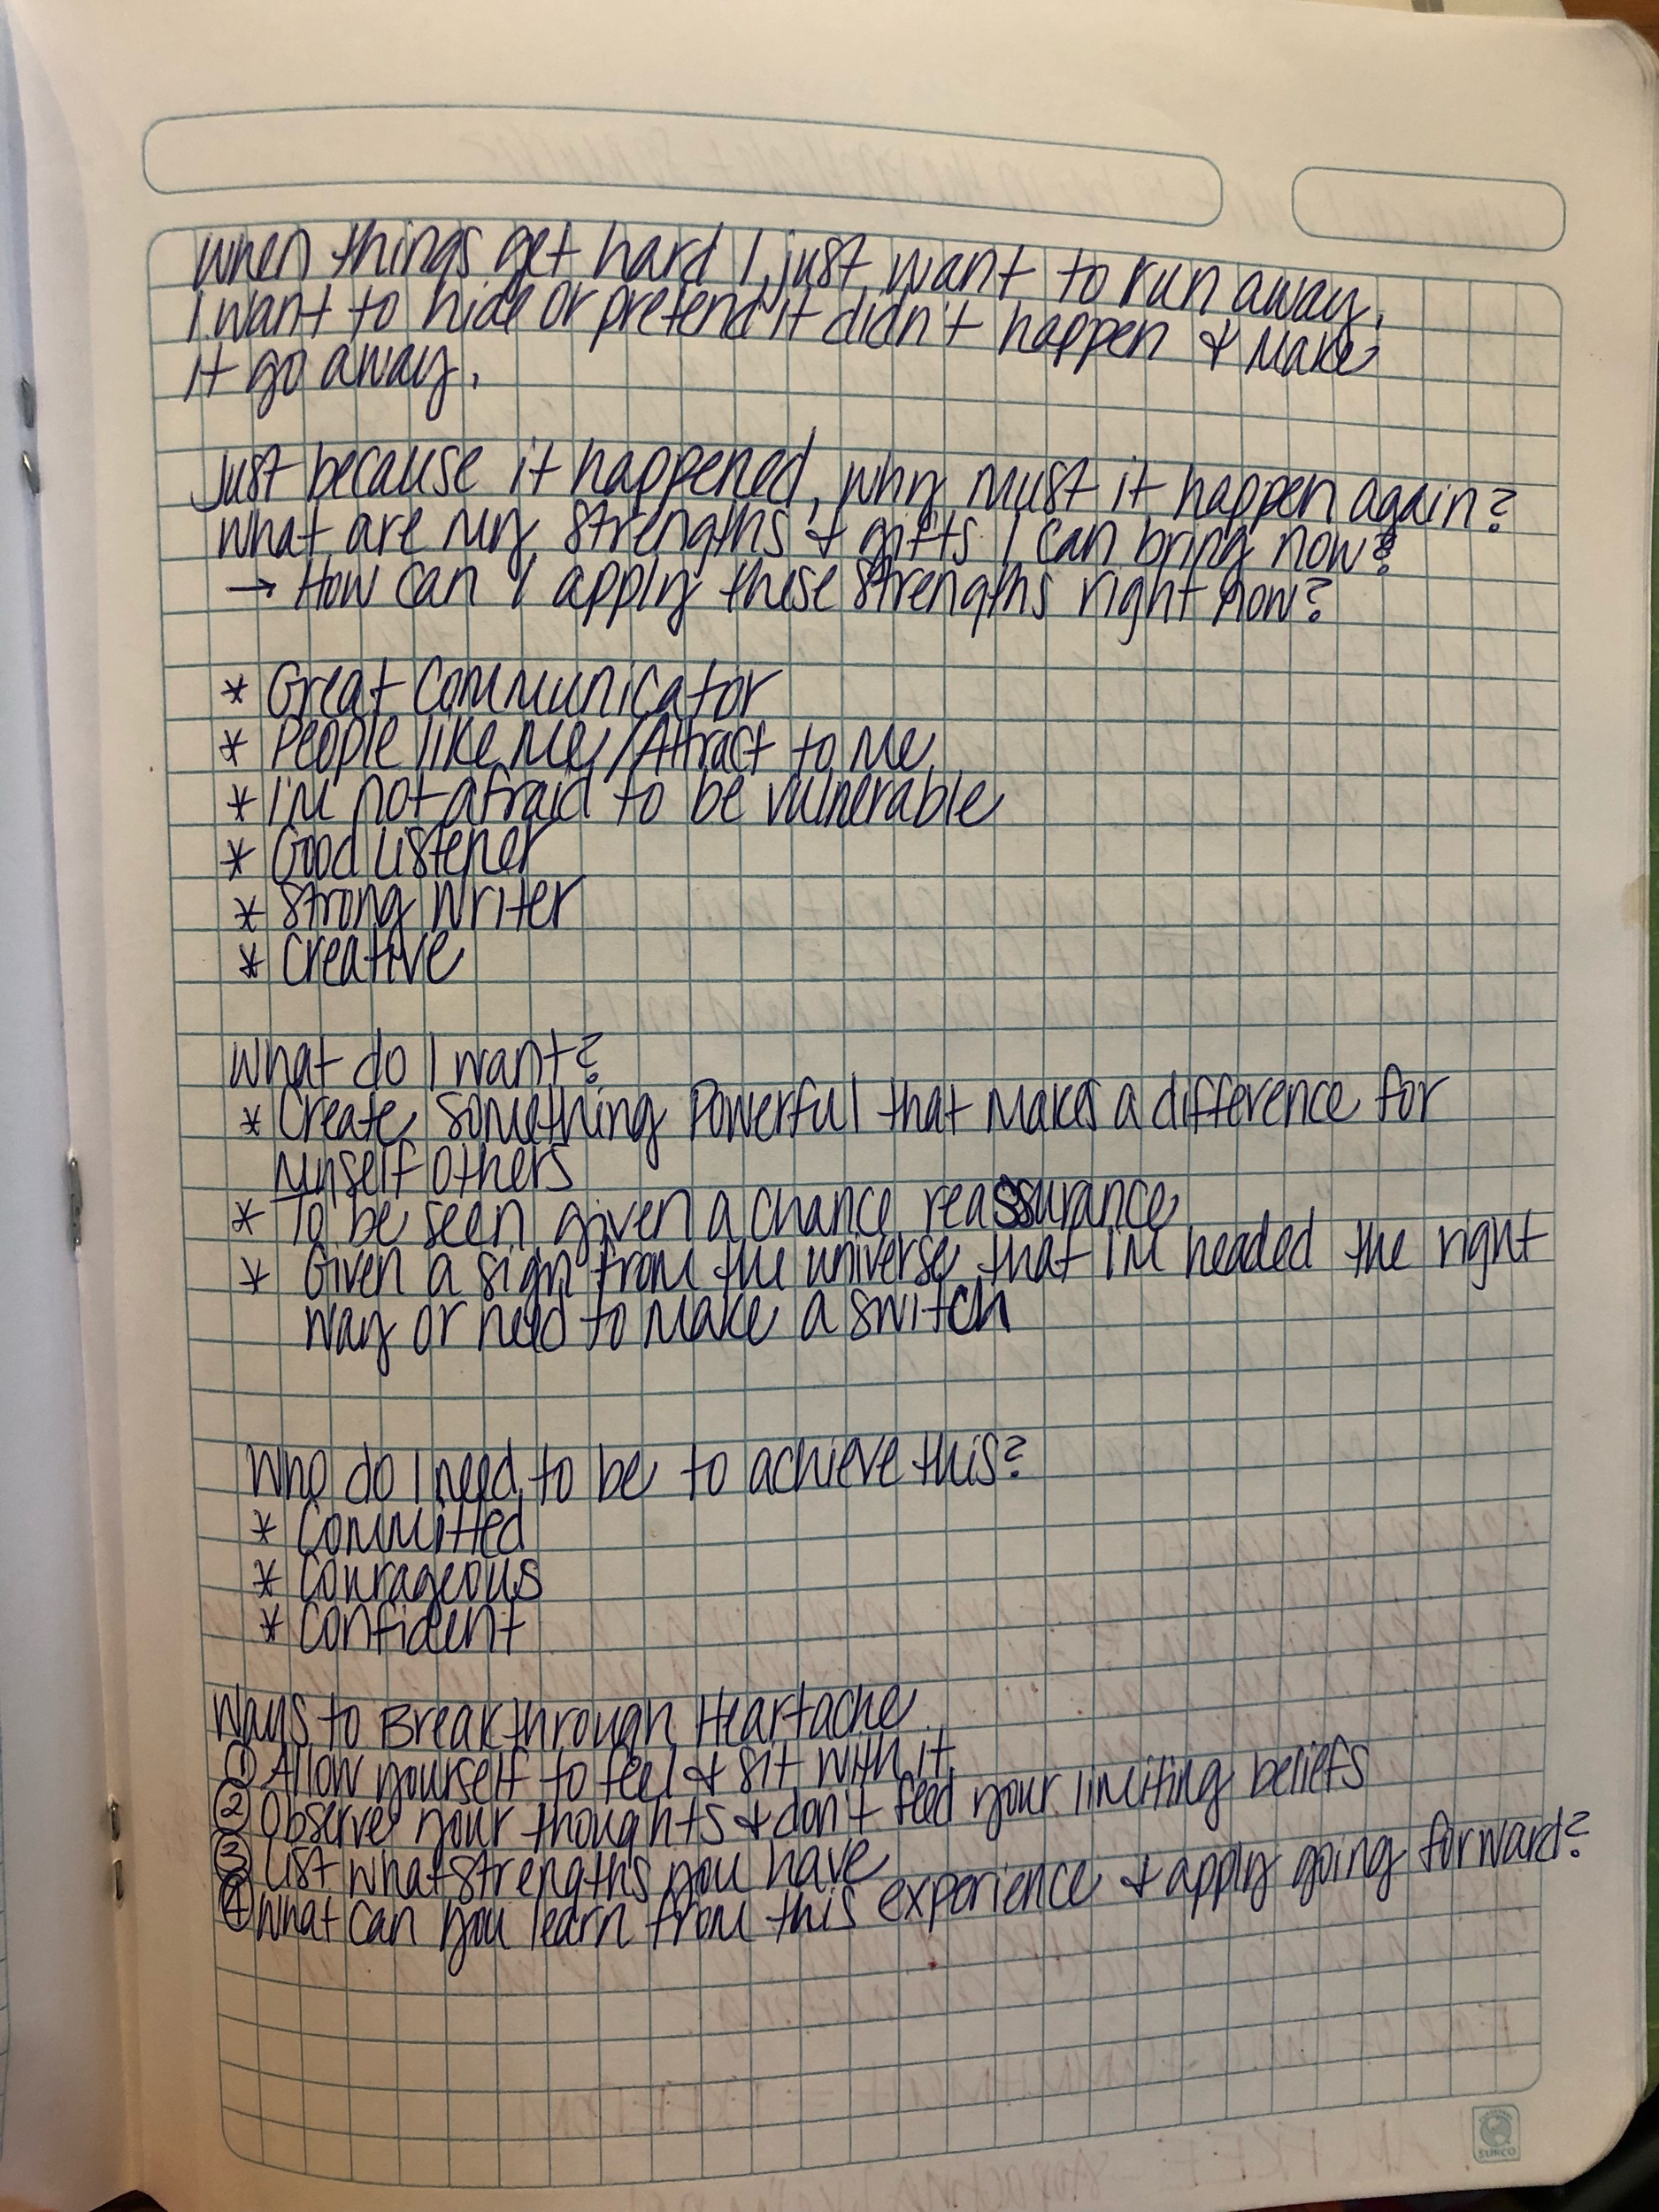 When things get hard I just want to run away.
I want to hide or pretend it didn't happen & Make
it go away.
Just because it happened, why must it happen again?
What are my strengths & gifts I can bring now?
→ How can I apply these strengths right now?
* Great Communicator
* People like Me/Attract to Me
* I'm not afraid to be vulnerable
* Good Listener
* Strong Writer
* Creative
What do I want?
* Create Something Powerful that Makes a difference for
myself others
* To be seen given a chance reassurance
* Given a sign from the universe that I'm headed the right
way or need to make a switch
Who do I need to be to achieve this?
* Committed
* Courageous
* Confident
Ways to Breakthrough Heartache
① Allow yourself to feel & sit with it
② Observe your thoughts & don't feed your limiting beliefs
③ List what strengths you have
④ What can you learn from this experience & apply going forward?
SURCO